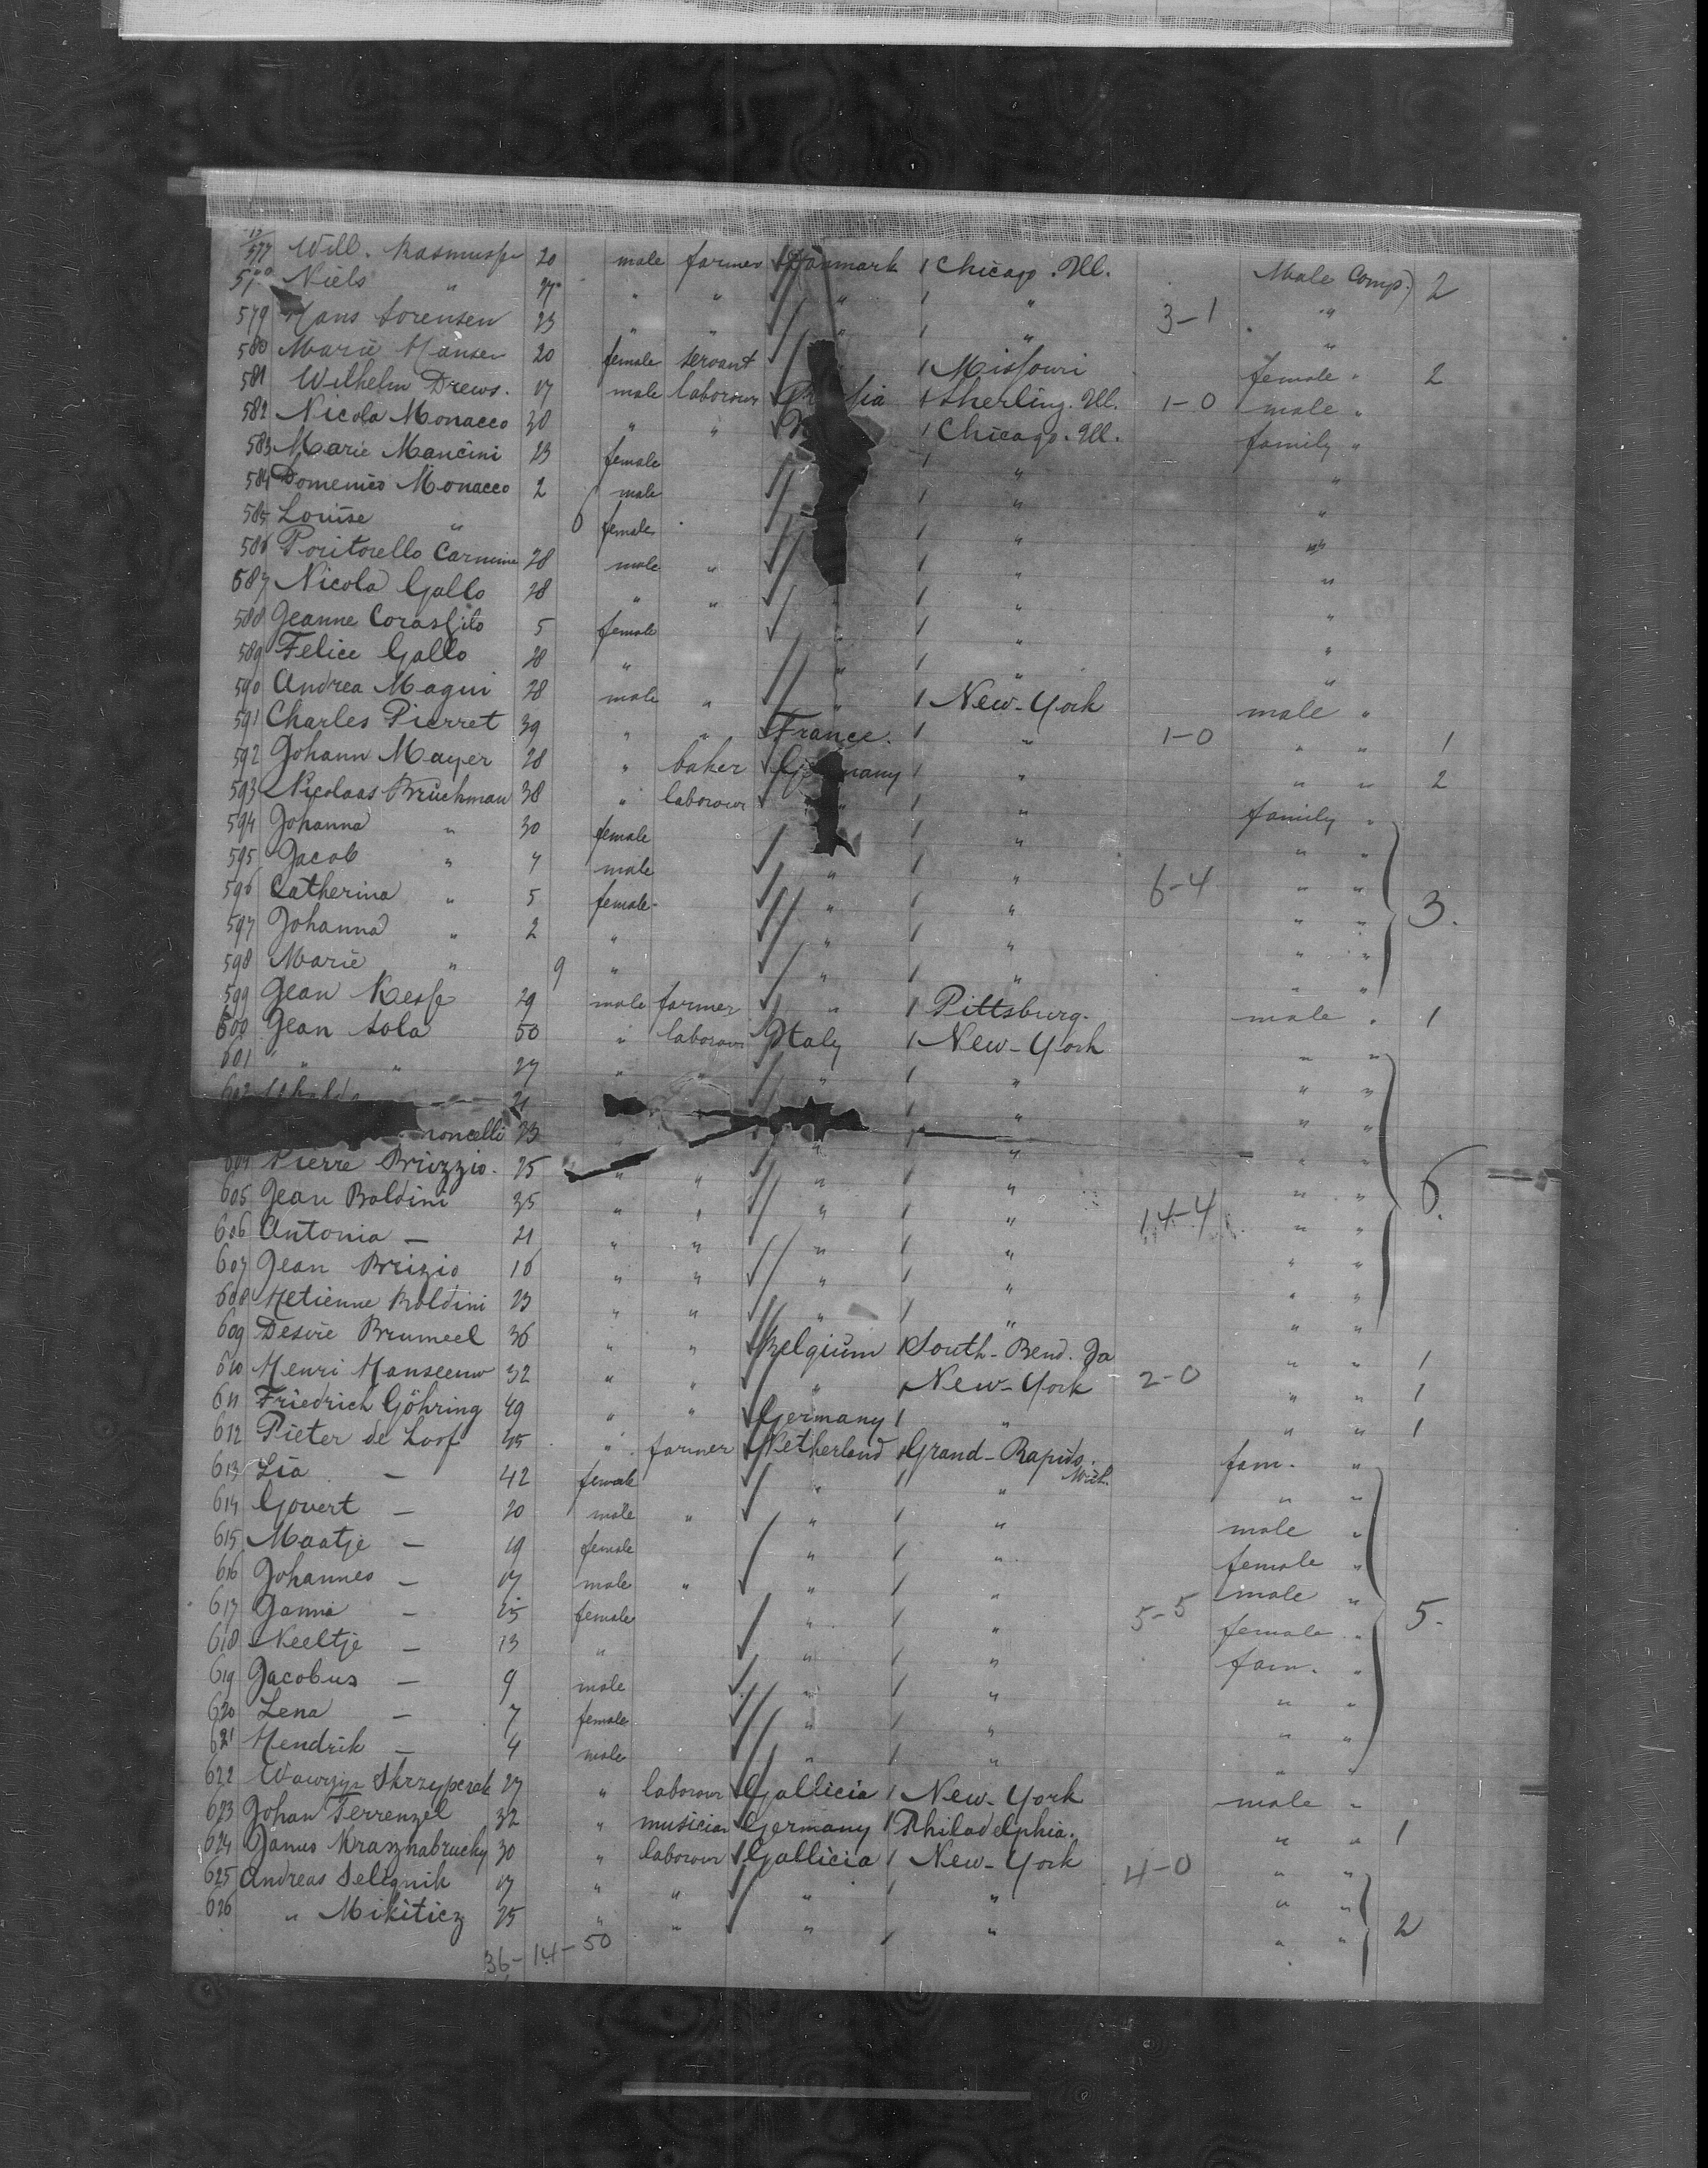 577 Will. Rasmusse 20 male farmer Danmark 1 Chicago. Ill. Male Comp. 2
Niels " " " " 1 " "
579 Hans Sorensen 23 " " " 1 " 3-1 "
580 Marie Hansen 20 female servant 1 Missouri female " 2
581 Wilhelm Drews. 17 male labourer 1 Sherling. Ill. 1-0 male "
582 Nicola Monacco 30 " " 1 Chicago. Ill. family "
583 Marie Mancini 23 female 1 " "
584 Domenico Monacco 2 male 1 " "
585 Louise " 6 female 1 " "
586 Poritorello Carmine 28 male " 1 " "
587 Nicola Gallo 28 " " 1 " "
588 Jeanne 5 female " 1 " "
589 Felice Gallo 28 " " 1 " "
590 Andrea Magui 28 male " " 1 New-York male "
591 Charles Pierret 39 " " France. 1 " 1-0 " " 1
592 Johann Mayer 28 " baker Germany 1 " " " 2
593 Nicolaas Brückman 38 " labourer " 1 " family "
594 Johanna " 30 female 1 " " "
595 Jacob " 7 male " 1 " 6-4 " "
596 Catherina " 5 female " 1 " " " 3.
597 Johanna " 2 " " 1 " " "
598 Marie " 9 " " 1 " " "
599 Jean 29 male farmer " 1 Pittsburg. male " 1
600 Jean Sola 50 " labourer Italy 1 New-York " "
601 " " 27 " " " 1 " " "
21 " " "
noncelli 23 " " " "
604 Pierre Briezzio. 25 " " " 1 " " "
605 Jean Boldini 35 " " " 1 " 14-4 " " 6.
606 Antonia — 21 " " " 1 " " "
607 Jean Brizio 16 " " " 1 " " "
608 Metienne Boldini 23 " " " 1 " " "
609 Desire Brumeel 36 " " Belgium 1 South-Bend. Ja " " 1
610 Henri Hanseeuw 32 " " " New-York 2-0 " " 1
611 Friedrich Göhring 49 " " Germany 1 " " " 1
612 Pieter de Loof 45 " farmer Netherland 1 Grand-Rapids. Mich. fam. "
613 Lia — 42 female " 1 " " "
614 Govert — 20 male " " 1 " male "
615 Maatje — 19 female " 1 " female "
616 Johannes — 17 male " " 1 " male "
617 Janna — 15 female " 1 " 5-5 female " 5.
618 Neeltje — 13 " " 1 " fam. "
619 Jacobus — 9 male " 1 " " "
620 Lena — 7 female " 1 " " "
621 Hendrik — 4 male " 1 " " "
622 Wawrzyn Skrzypczak 27 " labourer Gallicia 1 New-York male "
623 Johan Terrenzel 32 " musician Germany 1 Philadelphia. " " 1
624 Janus Krasznabrucky 30 " labourer Gallicia 1 New-York 4-0 " "
625 Andreas Selignik 17 " " " 1 " " "
626 " Mikiticz 25 " " " 1 " " " 2
36-14-50